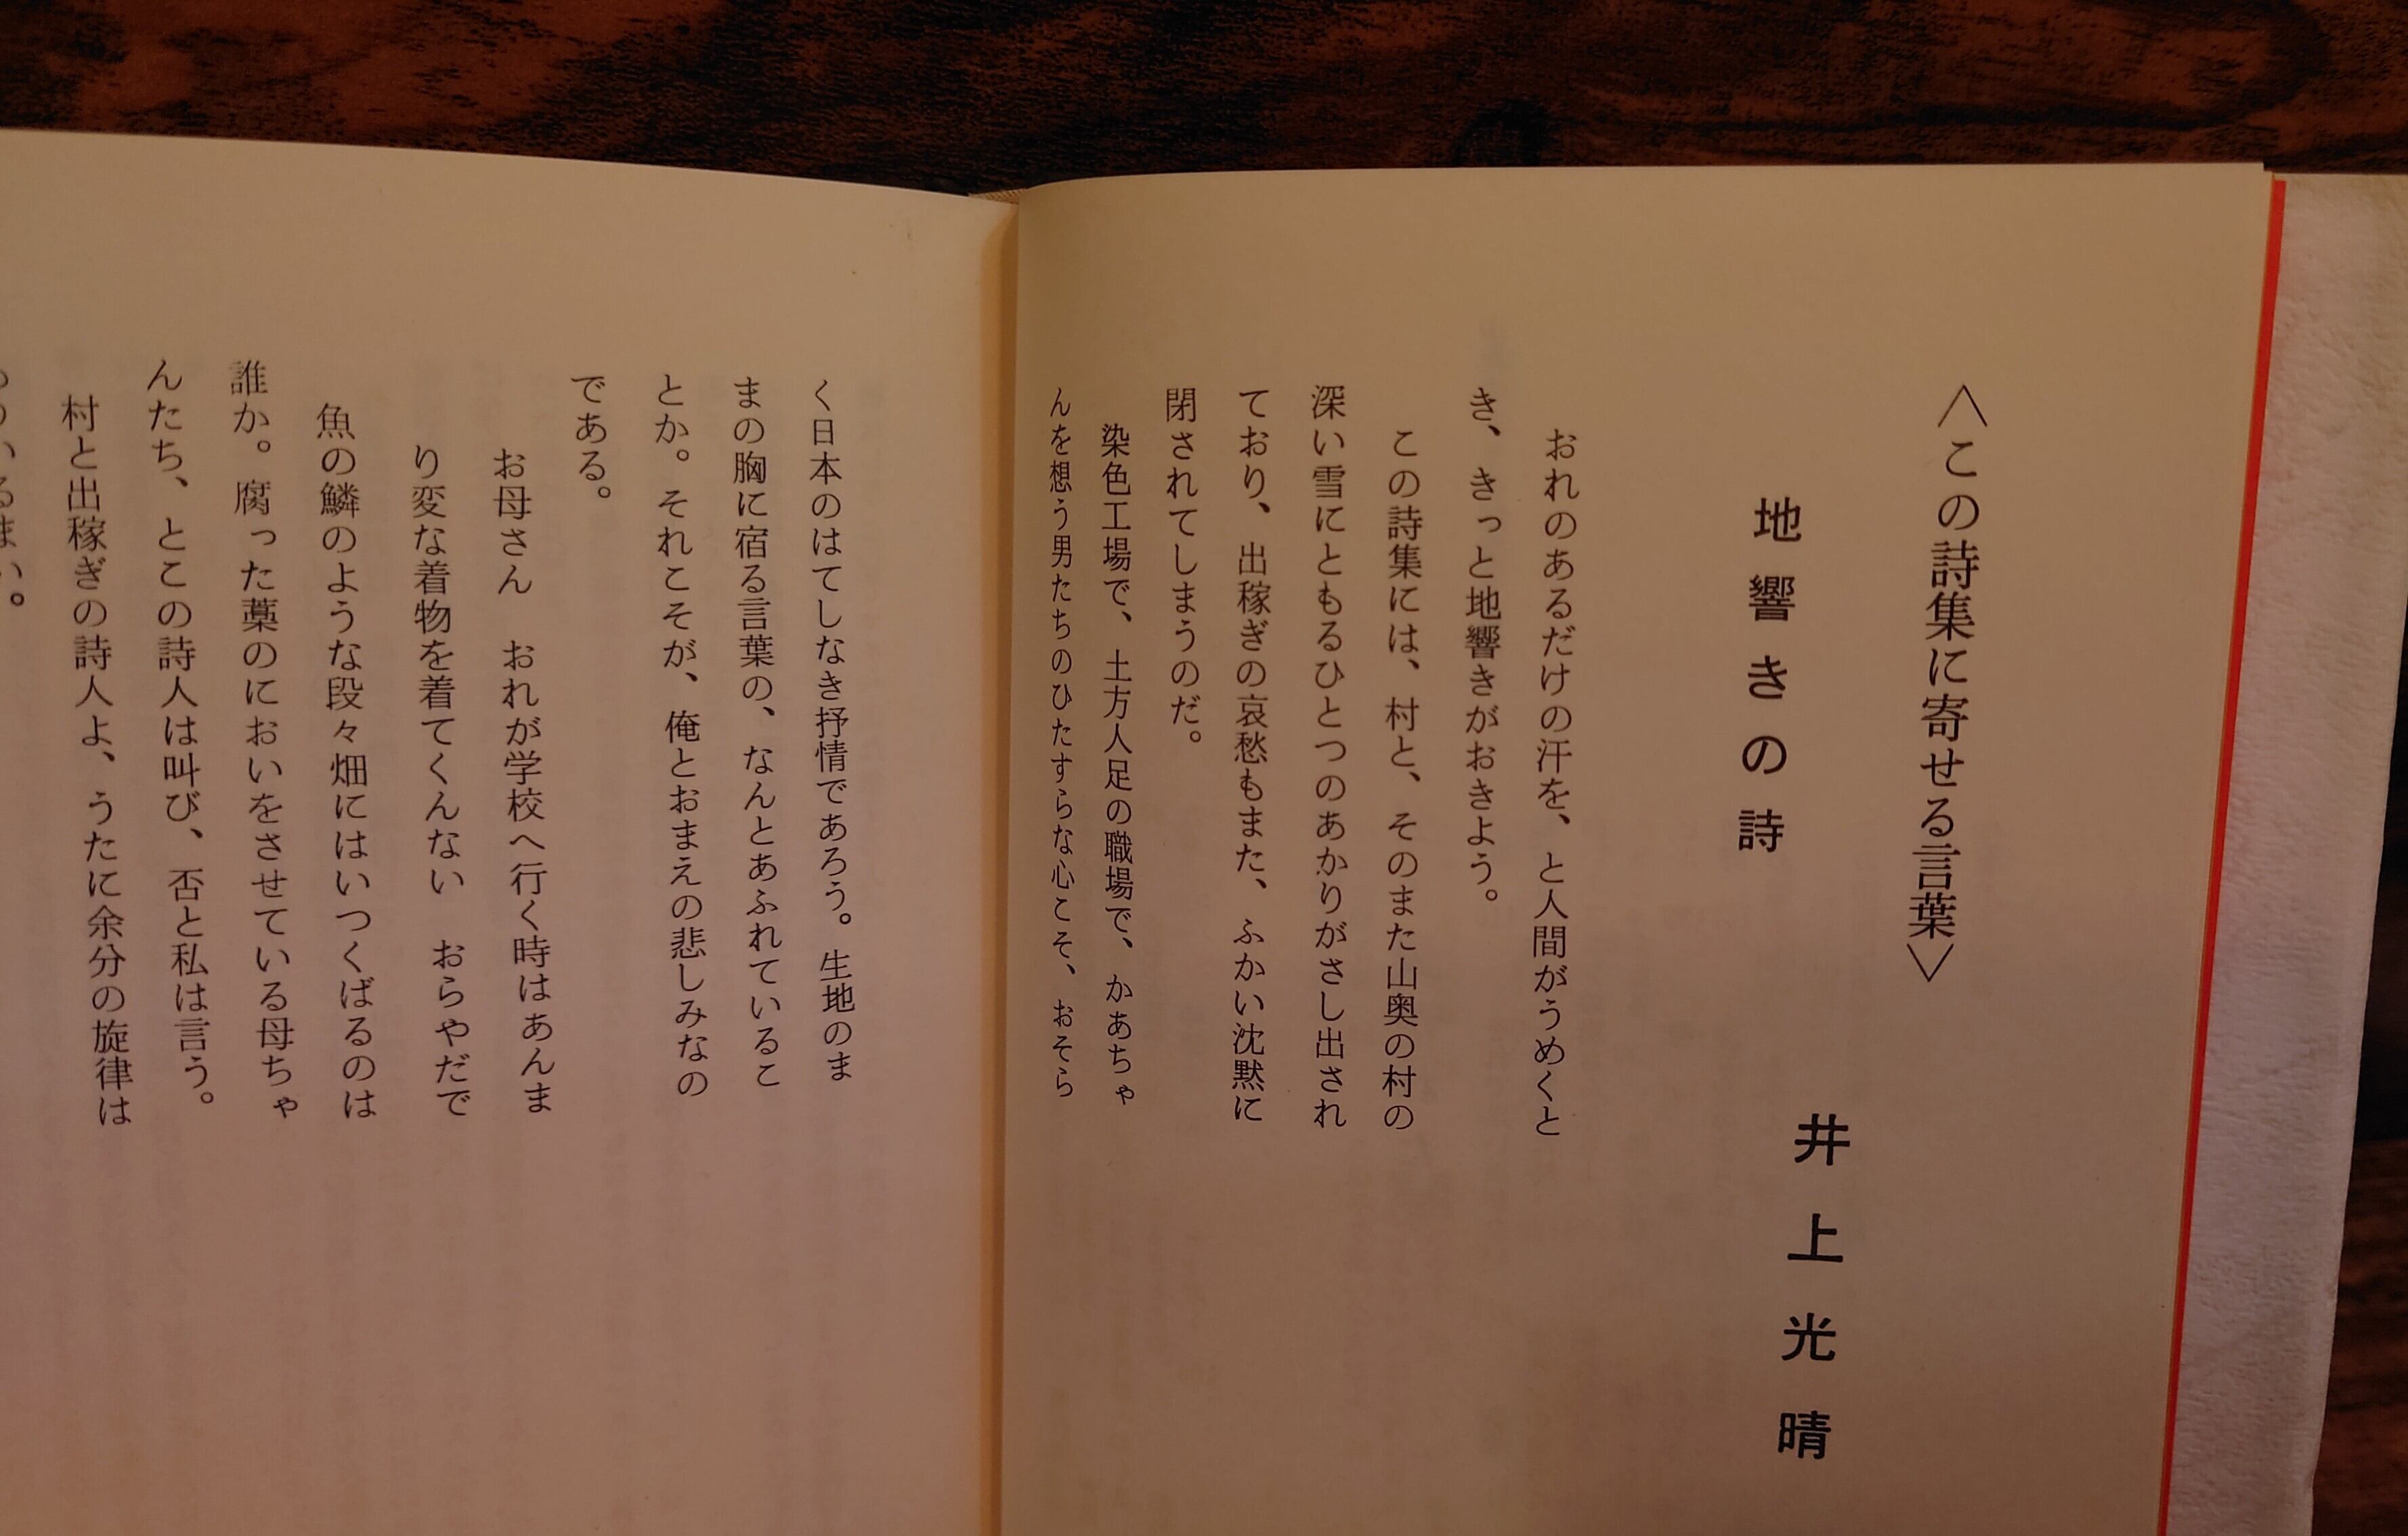 〈この詩集に寄せる言葉〉
地響きの詩
井上光晴
おれのあるだけの汗を、と人間がうめくと
き、きっと地響きがおきよう。
この詩集には、村と、そのまた山奥の村の
深い雪にともるひとつのあかりがさし出され
ており、出稼ぎの哀愁もまた、ふかい沈黙に
閉されてしまうのだ。
染色工場で、土方人足の職場で、かあちゃ
んを想う男たちのひたすらな心こそ、おそら
く日本のはてしなき抒情であろう。生地のま
まの胸に宿る言葉の、なんとあふれているこ
とか。それこそが、俺とおまえの悲しみなの
である。
お母さん　おれが学校へ行く時はあんま
り変な着物を着てくんない　おらやだで
魚の鱗のような段々畑にはいつくばるのは
誰か。腐った藁のにおいをさせている母ちゃ
んたち、とこの詩人は叫び、否と私は言う。
村と出稼ぎの詩人よ、うたに余分の旋律は
いるまい。